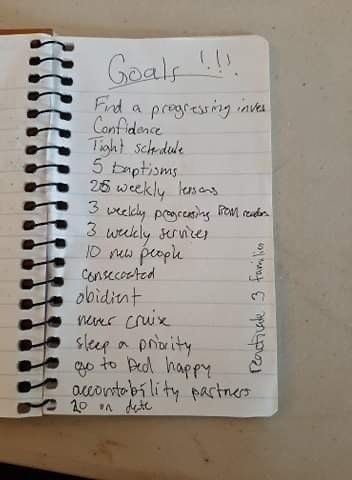 Goals !!!
Find a progressing inves
Confidence
Tight schedule
5 baptisms
25 weekly lessons
3 weekly progressing BOM readers
3 weekly services
10 new people
consecrated
obidient
never cruise
sleep a priority
go to bed happy
accountability partners
20 on date
reactivate 3 families